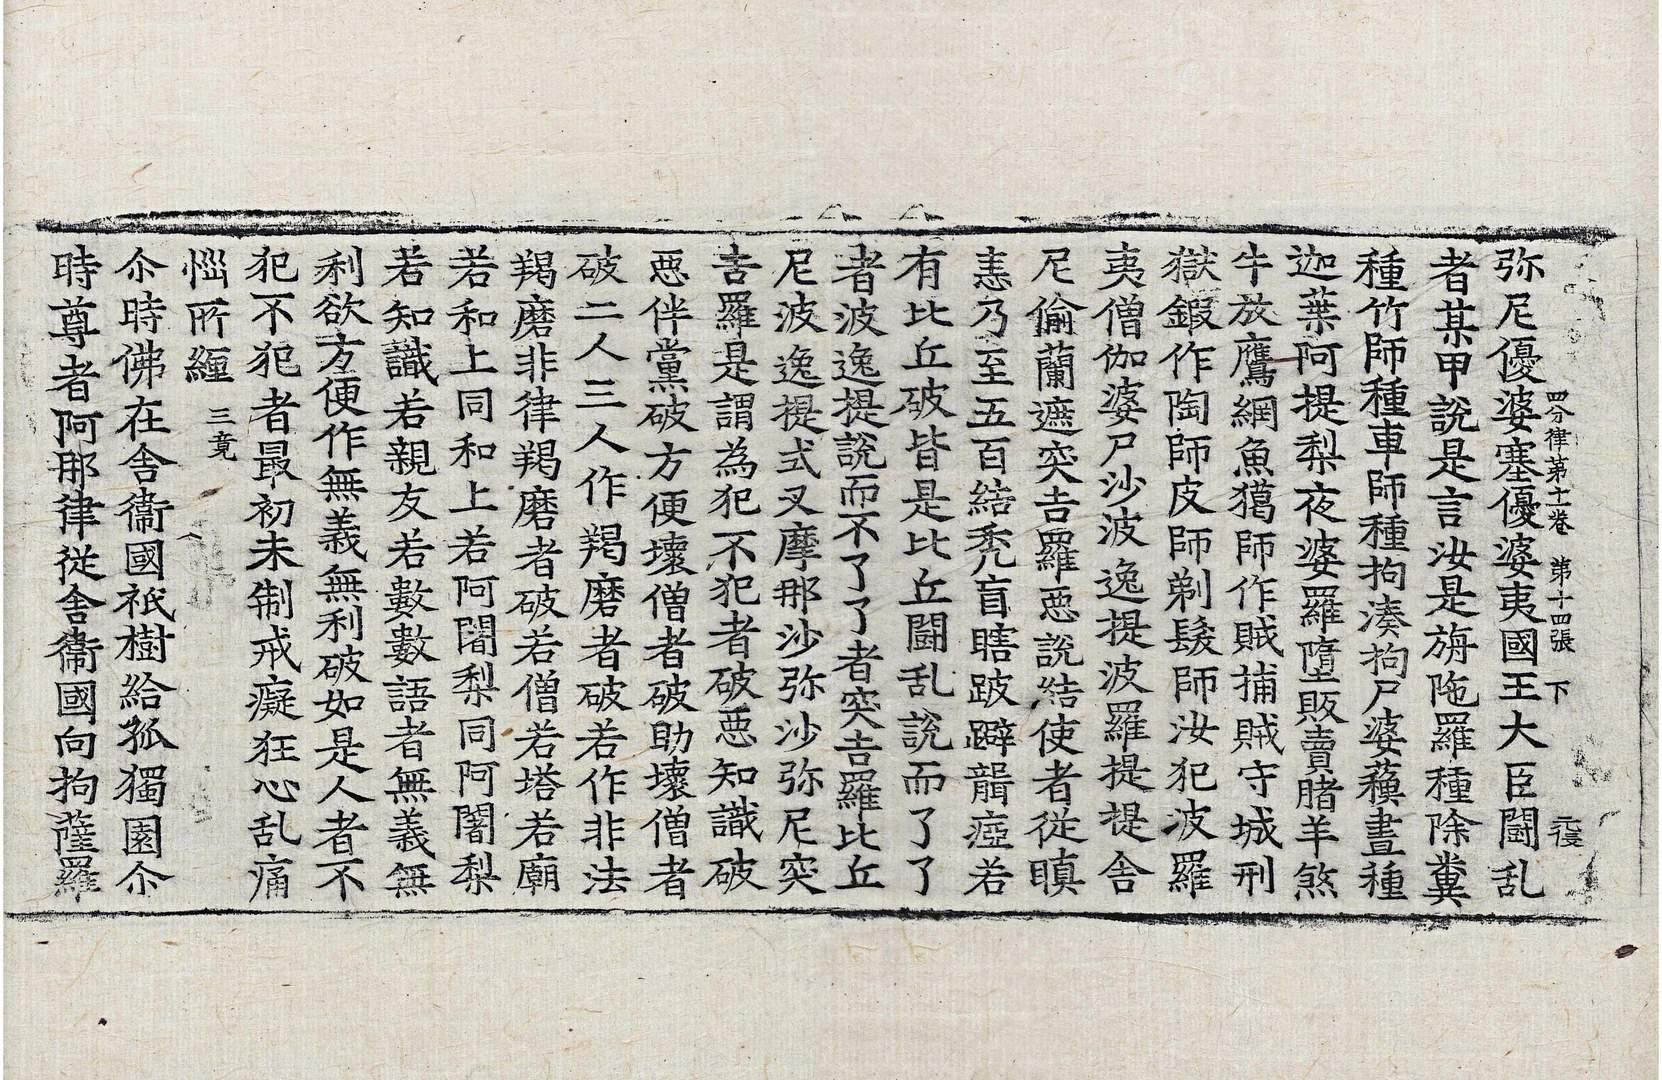 四分律第十一卷　第十四張　下　元復
弥尼優婆塞優婆夷國王大臣鬪乱
者某甲說是言汝是旃陁羅種除糞
種竹師種車師種拘湊拘尸婆蘇晝種
迦葉阿提梨夜婆羅墮販賣賭羊煞
牛放鷹網魚獦師作賊捕賊守城刑
獄鍜作陶師皮師剃髮師汝犯波羅
夷僧伽婆尸沙波逸提波羅提提舍
尼偷蘭遮突吉羅惡說結使者從瞋
恚乃至五百結禿盲瞎跛躃聾瘂若
有比丘破皆是比丘鬪乱說而了了
者波逸提說而不了了者突吉羅比丘
尼波逸提式叉摩那沙弥沙弥尼突
吉羅是謂為犯不犯者破惡知識破
惡伴黨破方便壞僧者破助壞僧者
破二人三人作羯磨者破若作非法
羯磨非律羯磨者破若僧若塔若廟
若和上同和上若阿闍梨同阿闍梨
若知識若親友若數數語者無義無
利欲方便作無義無利破如是人者不
犯不犯者最初未制戒癡狂心乱痛
惱所纏三竟
尒時佛在舍衞國祇樹給孤獨園尒
時尊者阿那律從舍衞國向拘薩羅